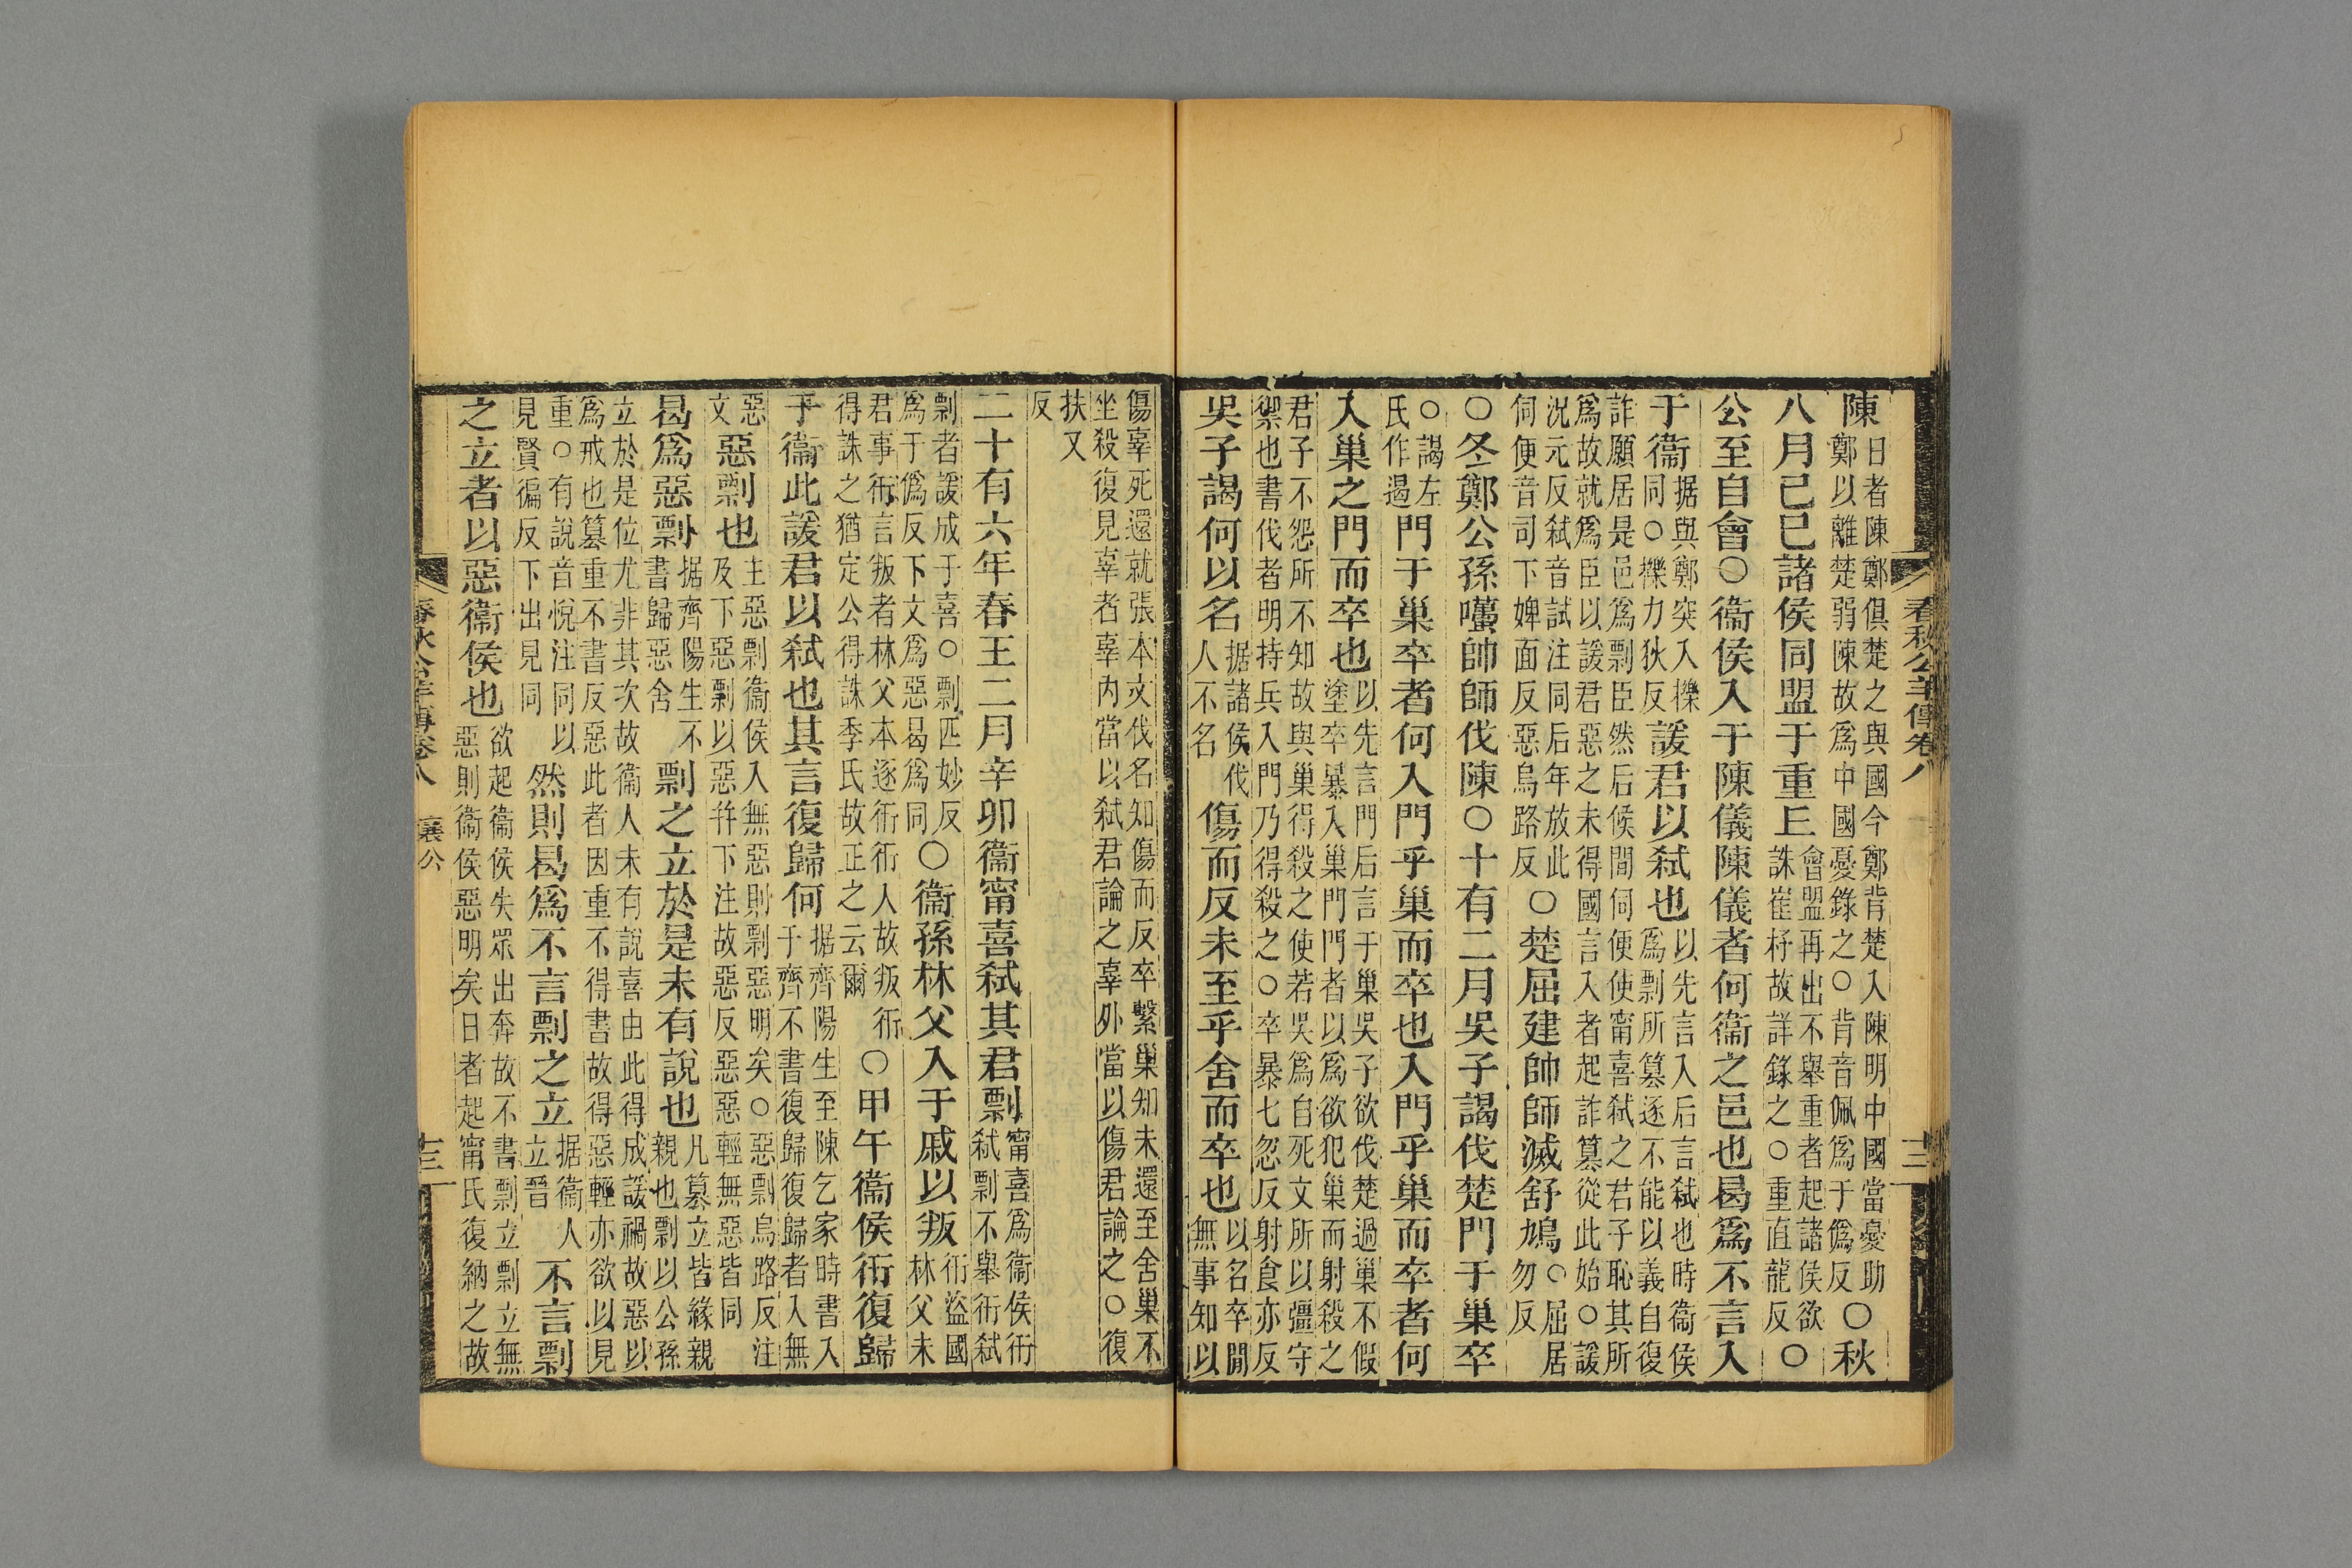 春秋公羊傳卷八
陳日者陳鄭俱楚之與國今鄭背楚入陳明中國當憂助鄭以離楚弱陳故爲中國憂錄之○背音佩爲于僞反○秋
八月己巳諸侯同盟于重丘會盟再出不舉重者起諸侯欲誅崔杼故詳錄之○重直龍反○
公至自會○衞侯入于陳儀陳儀者何衞之邑也曷爲不言入
于衞据與鄭突入櫟同○櫟力狄反諼君以弒也以先言入后言弒也時衞侯爲剽所簒逐不能以義自復
詐願居是邑爲剽臣然后候間伺便使甯喜弒之君子恥其所
爲故就爲臣以諼君惡之未得國言入者起詐簒從此始○諼
況元反弒音試注同后年放此伺便音司下婢面反惡烏路反○楚屈建帥師滅舒鳩○屈居勿反
○冬鄭公孫囆帥師伐陳○十有二月吳子謁伐楚門于巢卒
○謁左氏作遏門于巢卒者何入門乎巢而卒也入門乎巢而卒者何
入巢之門而卒也以先言門后言于巢吳子欲伐楚過巢不假塗卒暴入巢門門者以爲欲犯巢而射殺之
君子不怨所不知故與巢得殺之使若吳爲自死文所以彊守
禦也書伐者明持兵入門乃得殺之○卒暴七忽反射食亦反
吳子謁何以名据諸侯伐人不名傷而反未至乎舍而卒也以名卒間無事知以
傷辜死還就張本文伐名知傷而反卒繫巢知未還至舍巢不
坐殺復見辜者辜內當以弒君論之辜外當以傷君論之○復
扶又反
二十有六年春王二月辛卯衞甯喜弒其君剽甯喜爲衞侯衎弒剽不舉衎弒
剽者諼成于喜○剽匹妙反爲于僞反下文爲惡曷爲同○衞孫林父入于戚以叛衎盜國林父未
君事衎言叛者林父本逐衎衎人故叛衎得誅之猶定公得誅季氏故正之云爾○甲午衞侯衎復歸
于衞此諼君以弒也其言復歸何据齊陽生至陳乞家時書入于齊不書復歸復歸者入無
惡文惡剽也主惡剽衞侯入無惡則剽惡明矣○惡剽烏路反注及下惡剽以惡幷下注故惡反惡惡輕無惡皆同
曷爲惡剽据齊陽生不書歸惡舍剽之立於是未有說也凡簒立皆緣親親也剽以公孫
立於是位尤非其次故衞人未有說喜由此得成諼禍故惡以
爲戒也簒重不書反惡此者因重不得書故得惡輕亦欲以見
重○有說音悅注同以見賢徧反下出見同然則曷爲不言剽之立据衞人立晉不言剽
之立者以惡衞侯也欲起衞侯失眾出奔故不書剽立剽立無惡則衞侯惡明矣日者起甯氏復納之故
春秋公羊傳卷八 襄公 十三